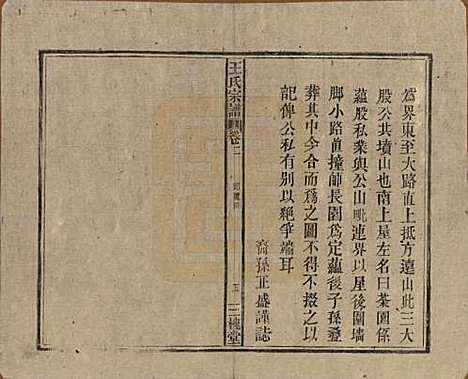 為界東至大路直上抵方遠山此三大
股公共墳山也南上星左名曰茶園係
蘊股私業與公山毗連界以星後圍墻
脚小路直撞師長園為定蘊後子孫登
葬其中今合而為之圖不得不掇之以
記俾公私有别以絶爭端耳
裔孫正盛謹誌
王氏宗譜
卷首二
五
三槐堂